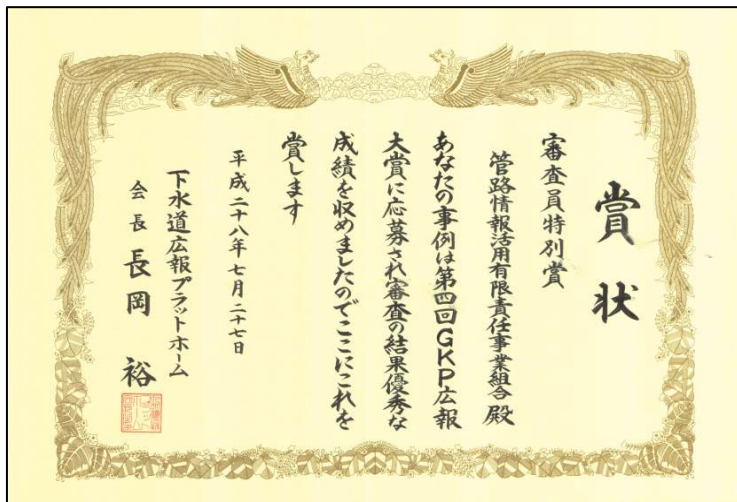 賞状
審査員特別賞
管路情報活用有限責任事業組合 殿
あなたの事例は第四回GKP広報
大賞に応募され審査の結果優秀な
成績を収めましたのでここにこれを
賞します
平成二十八年七月二十七日
下水道広報プラットホーム
会長 長岡 裕